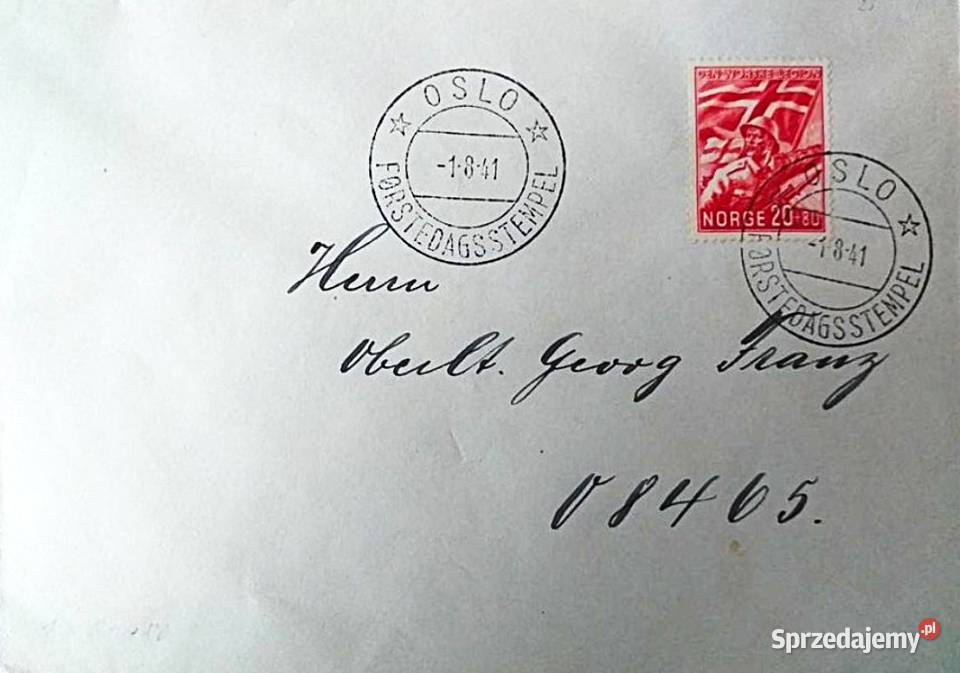 OSLO
-1·8·41
FØRSTEDAGSSTEMPEL
DEN NORSKE LEGION
NORGE 20+80
OSLO
-1·8·41
FØRSTEDAGSSTEMPEL
Herrn
Oberlt. Georg Franz
08465.
Sprzedajemy.pl